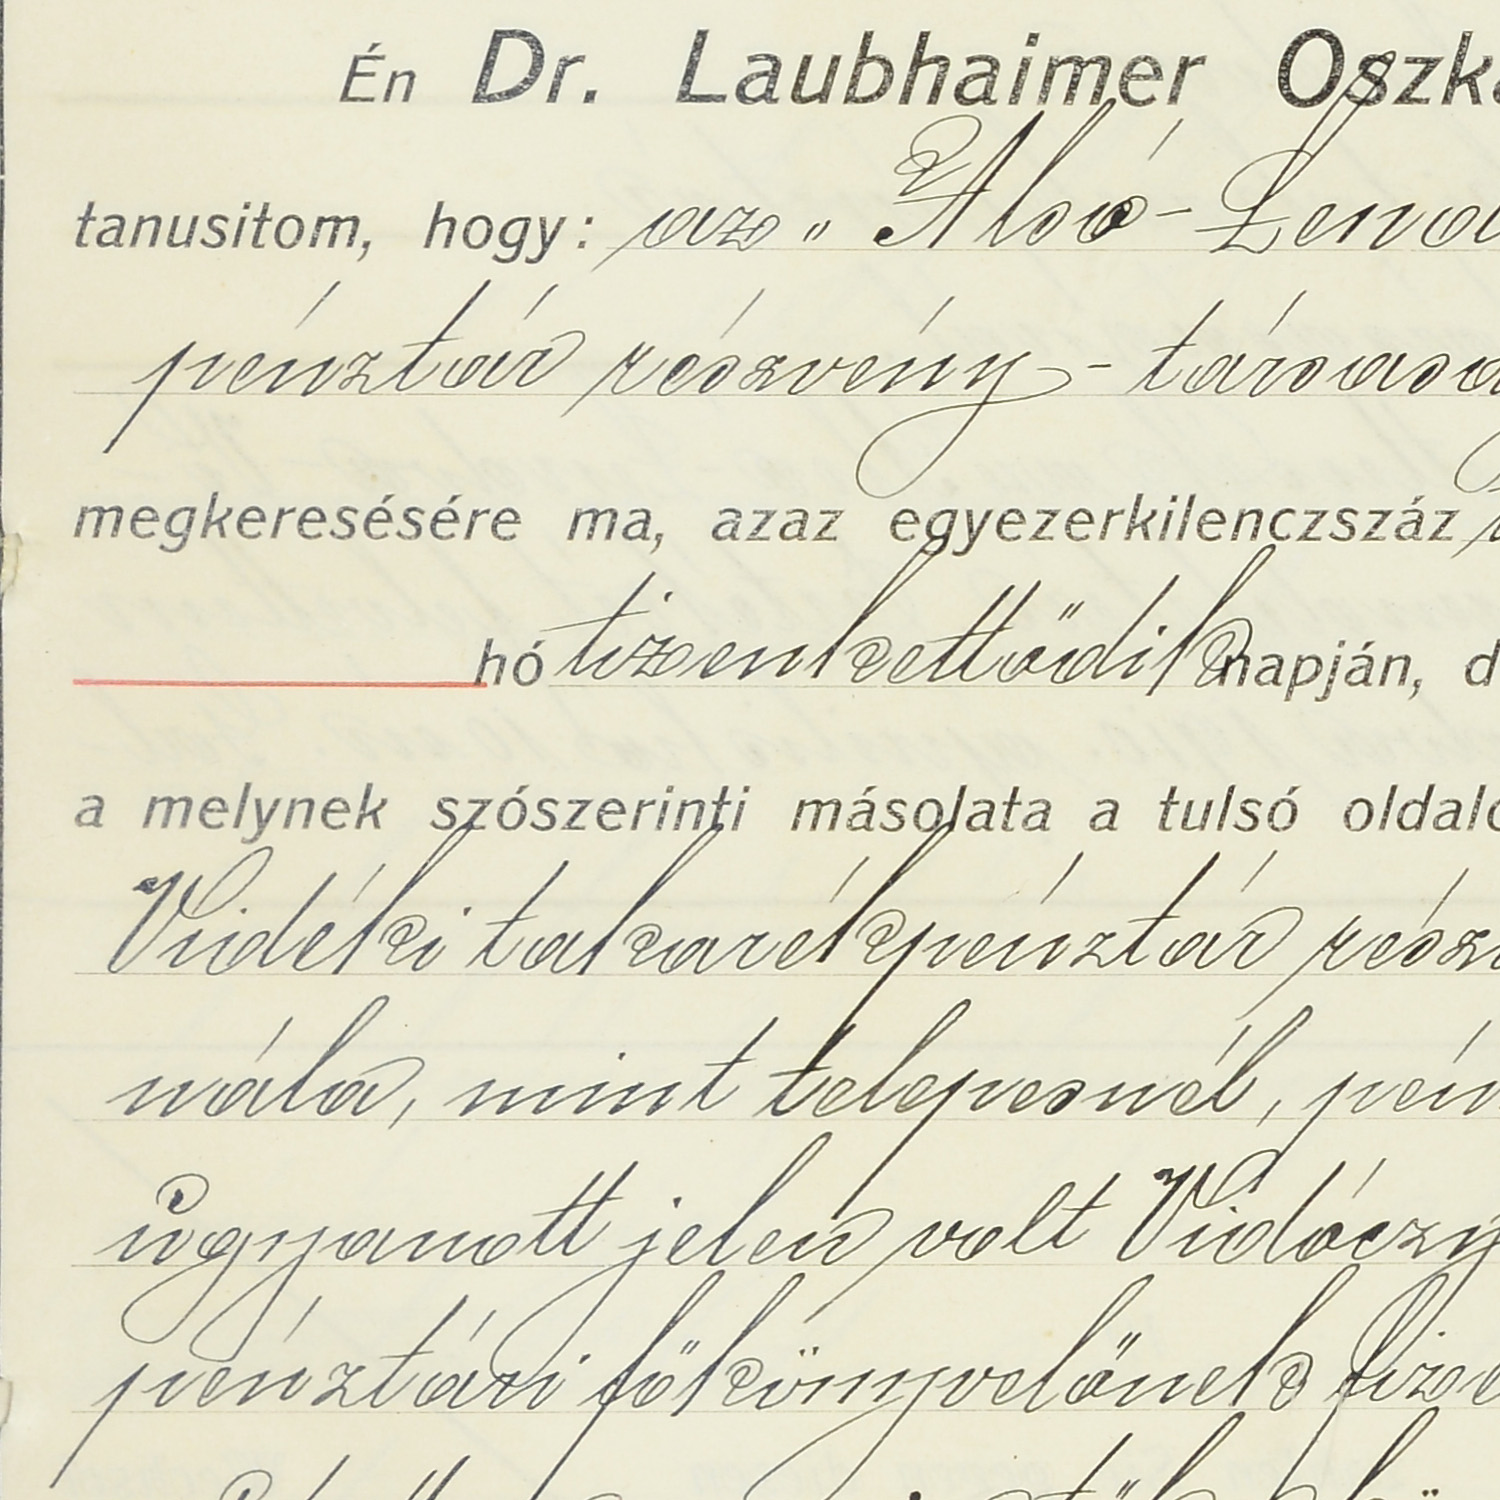 Én Dr. Laubhaimer Oszká
tanusitom, hogy: az „Alsó-Lend
pénztár részvény-társasá
megkeresésére ma, azaz egyezerkilenczszáz
hó tizenkettödik napján, d
a melynek szószerinti másolata a tulsó oldalo
Vidéki takarékpénztár rész
nála, mint telepesnél, pén
ugyanott jelen volt Vidóczy
pénztári főkönyvelőnek fize